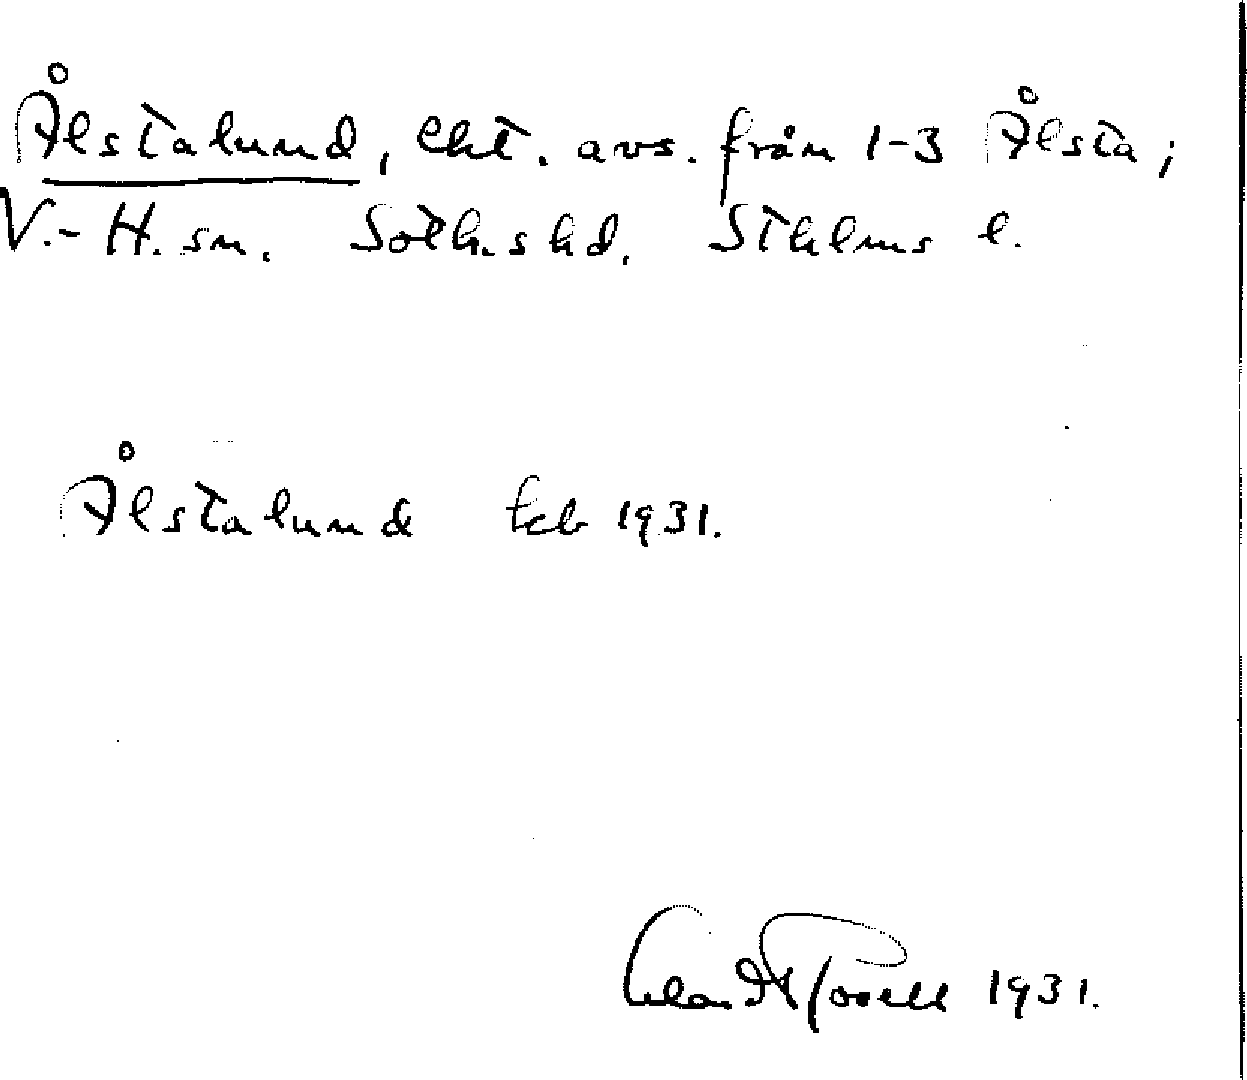 Ålstalund, lht. avs. från 1-3 Ålsta;
V.-H. sn. Soth.s hd. Sthlms l.
Ålstalund Feb 1931.
1931.